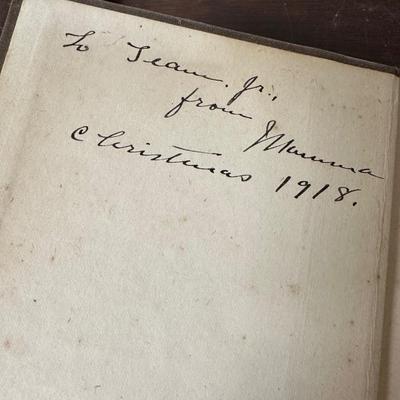 To Jr.,
from
Mamma
Christmas 1918.